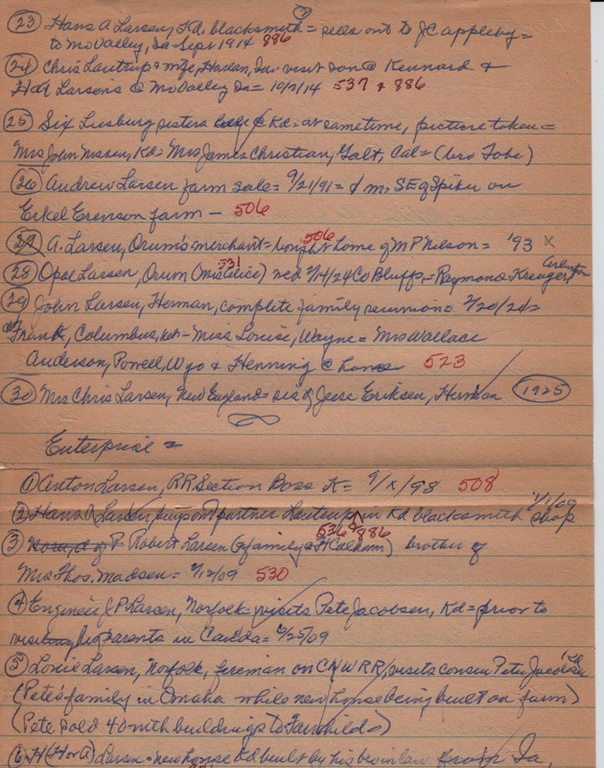 (23) Hans A. Larsen, Kd. blacksmith = sells out to JC Appleby =
to Mo Valley, Ia - Sept 1914 886
(24) Chris Lautrup & wife, Harlan, Ia visit son @ Kennard &
HA Larsens @ Mo Valley Ia = 10/2/14 537 & 886
(25) Six Liesburg sisters @ Kd = at same time, picture taken =
Mrs John Nissen, Kd = Mrs James Christian, Galt, Cal =
(26) Andrew Larsen farm sale = 9/21/91 = SE of Spiker on
Erkel Erenson farm - 506
(27) A. Larsen, Orum's merchant = bought home of M P Nelson = '93 x
506
(28) Opal Larsen, Orum wed 2/14/24 Co Bluffs, = Raymond Kreuger, Arlington
531
(29) John Larsen, Herman, complete family reunion 2/20/24 =
Frank, Columbus, = Miss Louise, Wayne = Mrs Wallace
Anderson, Powell, Wyo & Henning @ home 523
(30) Mrs Chris Larsen, New England = sis of Jesse Eriksen, Herman (1925)
Enterprise =
(1) Anton Larsen, RR Section Boss K = 9/x/98 508
(2) Hans A Larsen, buys out partner Lautrup in Kd blacksmith shop 1/1/09
536 & 886
(3) of P Robert Larsen (& family @ Ft Calhoun) brother of
Mrs Thos. Madsen = 530
(4) Engineer J. P. Larsen, Norfolk = visits Pete Jacobsen, Kd = prior to
visiting his parents in = 6/25/09
(5) Louie Larsen, Norfolk, fireman on CNW RR, visits cousin Peter Jacobsen, Kd
(Pete's family in Omaha while new house being built on farm)
(Pete sold 40 with buildings to Fairchilds)
(6) H (Hora) Larsen = new house Kd built by his bro in law from Ia,